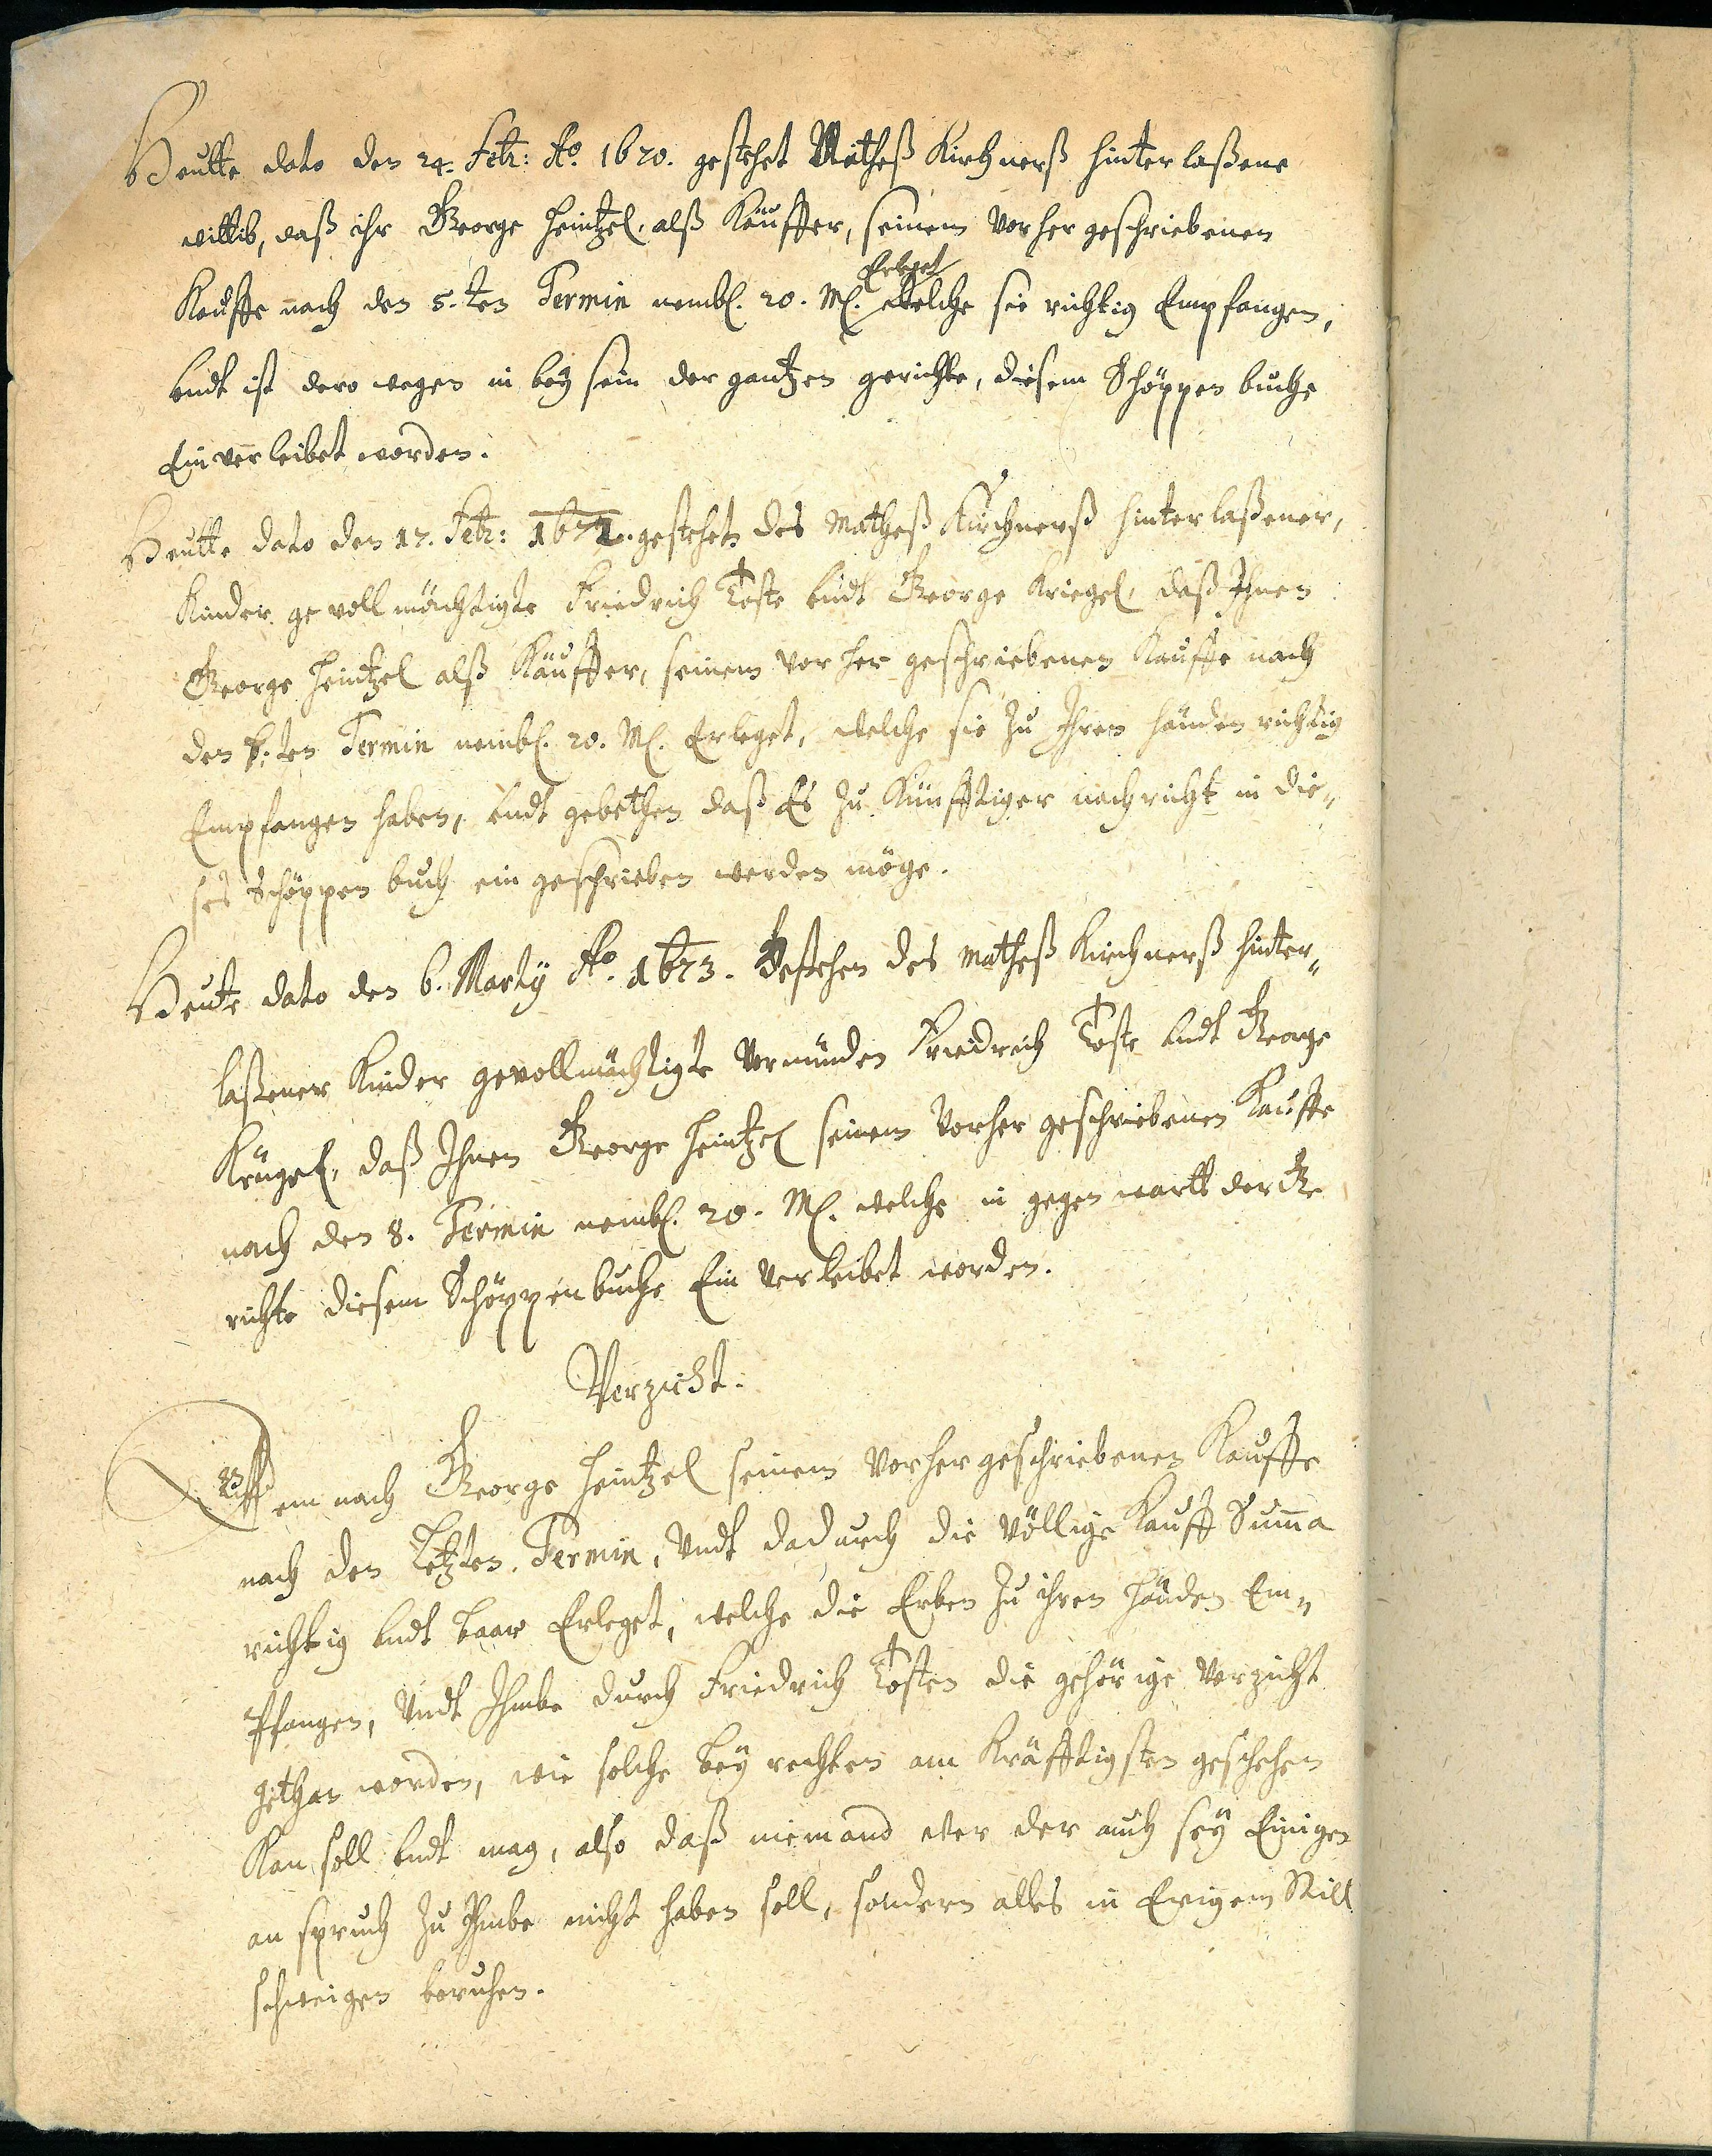 Heutte dato den 24. Febr: Ao. 1670. gestehet Matheß Kirchnerß hinterlaßene
wittib, daß ihr George Heintzel, alß Käuffer, seinem vorher geschriebenen
Kauffe nach den 5. ten Termin nembl. 20. M. Erleget welche sie richtig Empfangen,
undt ist dero wegen in bey sein der gantzen gerichte, diesem Schöppen buche
Einverleibet worden.
Heutte dato den 17. Febr: 1671. gestehet des Matheß Kirchnerß hinterlaßener,
Kinder gevollmächtigte Friedrich Toste undt George Kriegel, daß Ihnen
George Heintzel alß Käuffer, seinem vor her geschriebenen Kauffe nach
den ten Termin nembl. 20. M. Erleget, welche sie zu Ihren händen richtig
Empfangen haben, undt gebethen daß Es zu Künfftiger nachricht in die„
ses Schöppen buch ein geschrieben werden möge.
Heute dato den 6. Marty Ao. 1673. Gestehen des Matheß Kirchnerß hinter„
laßener Kinder gevollmächtigte Vormünden Friedrich Toste undt George
Krügel, daß Ihnen George Heintzel seinem Vorher geschriebenen Kauffe
nach den 8. Termin nembl. 20. M. welche in gegen wartt der Ge
richte diesem Schöppenbuche Ein Verleibet worden.
Verzicht.
Dem nach George Heintzel seinem Vorher geschriebenen Kauffe
nach den Letzten Termin, Undt dadurch die völlige Kauff Summa
richtig undt baar Erleget, welche die Erben zu ihren händen Em„
pfangen, Undt Ihmbe durch Friedrich Tosten die gehörige Verzicht
gethan worden, wie solche bey rechten am Kräfftigsten geschehen
Kan soll undt mag, also daß niemand wer der auch sey Einigen
an spruch zu Ihmbe nicht haben soll, sondern alles in Ewigem Still
schweigen beruhen.